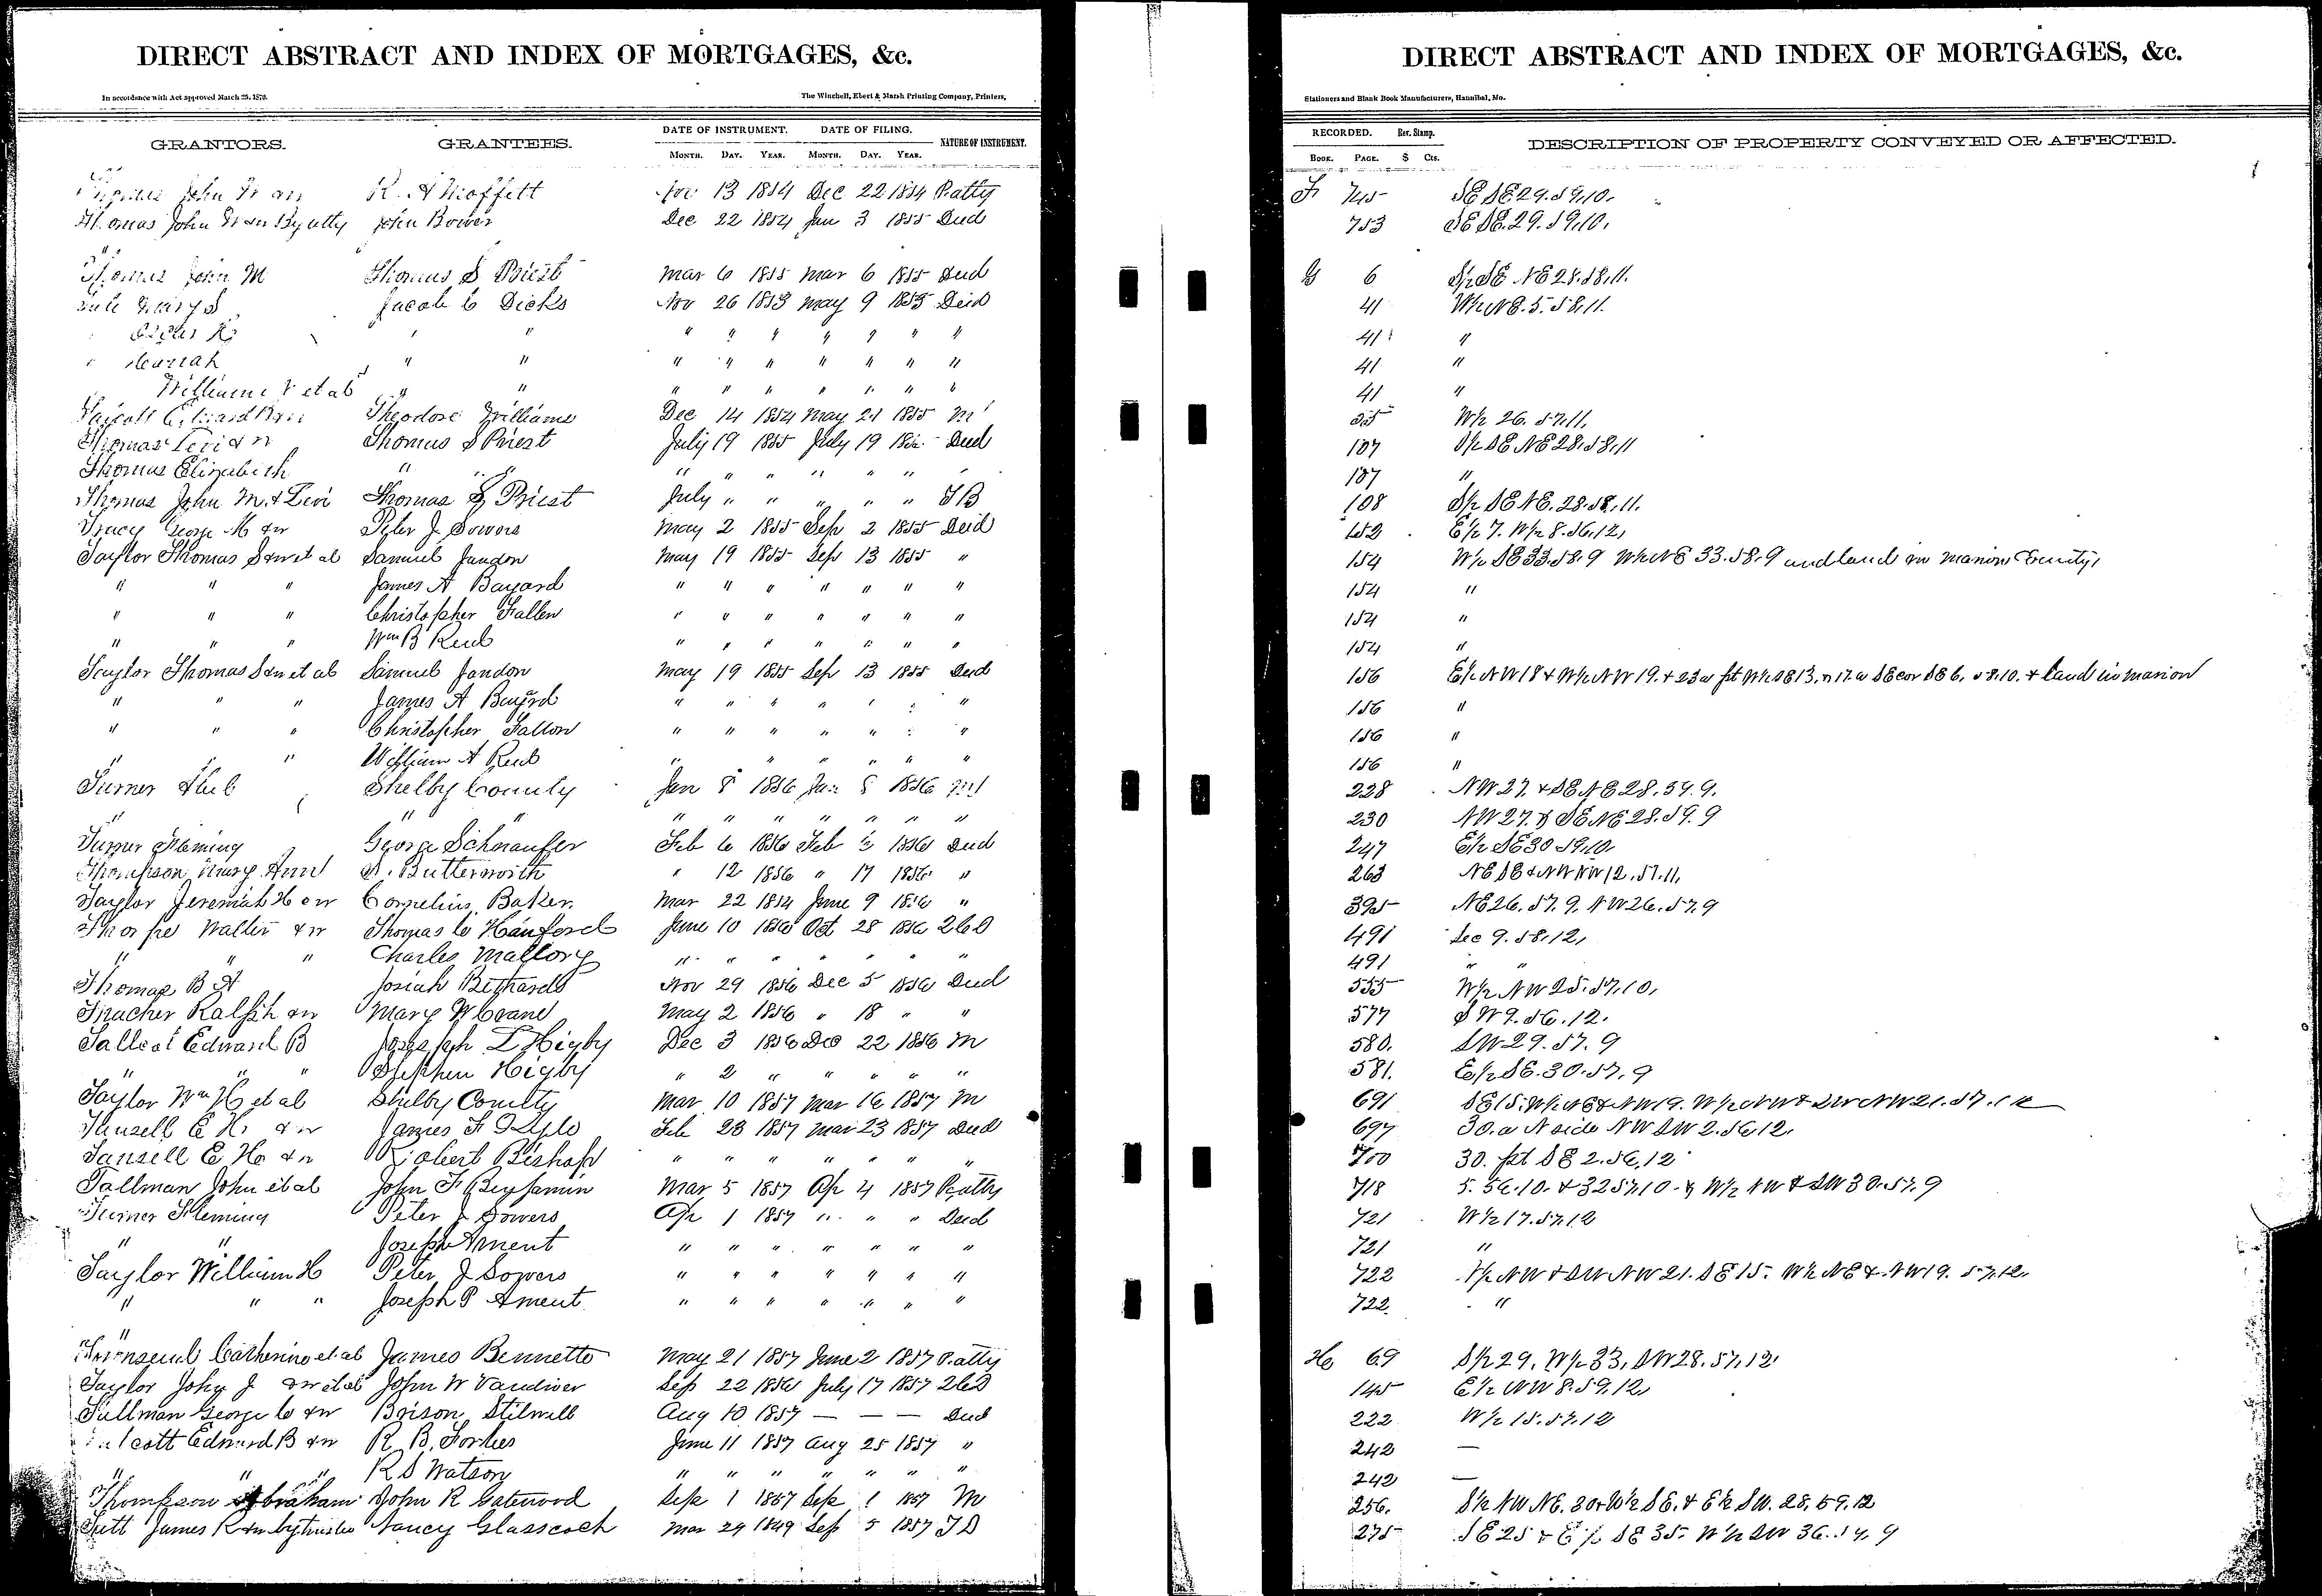 DIRECT ABSTRACT AND INDEX OF MORTGAGES, &c.
In accordance with Act approved March 25, 1870. The Winchell, Ebert & Marsh Printing Company, Printers,
GRANTORS. GRANTEES. DATE OF INSTRUMENT. DATE OF FILING. NATURE OF INSTRUMENT.
MONTH. DAY. YEAR. MONTH. DAY. YEAR.
John R. A Moffett Nov 13 1854 Dec 22 1854 P. atty
Thomas John by atty John Bower Dec 22 1854 Jan 3 1855 Deed
Thomas John M Thomas S Priest Mar 6 1855 Mar 6 1855 Deed
Jacob C Dicks Nov 26 1853 May 9 1855 Deed
" " " " " " " " "
" Mariah " " " " " " " " "
William et al " " " " " " " " "
Theodore Williams Dec 14 1854 May 21 1855 M
Thomas Levi & w Thomas S Priest July 19 1855 July 19 Deed
Thomas Elizabeth " " " " " " " "
Thomas John M. & Levi Thomas S Priest July " " " " " TB
Tracy George M & w Peter J Sowers May 2 1855 Sep 2 1855 Deed
Taylor Thomas S & w et al Samuel Jaudon May 19 1855 Sep 13 1855 "
" " " James A Bayard " " " " " " "
" " " Christopher Fallon " " " " " " "
" " " Wm B Reed " " " " " " "
Taylor Thomas S & w et al Samuel Jaudon May 19 1855 Sep 13 1855 Deed
" " " James A Bayard " " " " " " "
" " " Christopher Fallon " " " " " " "
" " " William A Reed " " " " " " "
Turner Shelby County Jan 8 1856 Jan 8 1856 M
" " " " " " " " "
Turner Fleming George Schraufer Feb 6 1856 Feb 1856 Deed
Thompson Mary Ann A. Butterworth " 12 1856 " 17 1856 "
Taylor Jeremiah H & w Cornelius Baker Mar 22 1854 June 9 1856 "
Thorpe Walter & w Thomas C Hanford June 10 1856 Oct 28 1856
" " Charles Mallory " " " " " " "
Thomas B A Josiah Bethards Nov 29 1856 Dec 5 1856 Deed
Thacher Ralph & w Mary W Crane May 2 1856 " 18 " "
Tallcot Edward B Joseph L Higby Dec 3 1856 Dec 22 1856 M
" " Stephen Higby " 2 " " " " "
Taylor Wm H et al Shelby County Mar 10 1857 Mar 16 1857 M
Tansell E H. & w James F Feb 23 1857 Mar 23 1857 Deed
Tansell E H & w Robert Bishop " " " " " " "
Tallman John et al John F Benjamin Mar 5 1857 Ap 4 1857 P. atty
Turner Fleming Peter J Sowers Ap 1 1857 " " " Deed
" " Joseph Ament " " " " " " "
Taylor William H Peter J Sowers " " " " " " "
" " " Joseph P Ament " " " " " " "
Townsend Catherine et al James Bennette May 21 1857 June 2 1857 P. atty
Taylor John J & w et al John W Vandiver Sep 22 1856 July 17 1857
Tullman George C & w Stilwell Aug 10 1857 — — — Deed
Talcott Edward B & w R. B. Forbes June 11 1857 Aug 25 1857 "
" " " R S Watson " " " " " " "
Thompson Abraham John R Gatewood Sep 1 1857 Sep 1 1857 M
Tutt James R & w by trustee Nancy Glasscock Mar 29 1849 Sep 5 1857 T D
DIRECT ABSTRACT AND INDEX OF MORTGAGES, &c.
Stationers and Blank Book Manufacturers, Hannibal, Mo.
RECORDED. Rev. Stamp. DESCRIPTION OF PROPERTY CONVEYED OR AFFECTED.
BOOK. PAGE. $ Cts.
F 745 SE SE 29.59.10.
753 SE SE. 29.59.10.
G 6 S½ SE NE 28.58.11.
41 W½ NE. 5.58.11.
41 "
41 "
41 "
55 W½ 26.57.11.
107 S½ SE NE 28.58.11
107 "
108 S½ SE NE. 28.58.11.
152 E½ 7. W½ 8.56.12.
154 W½ SE 33.58.9 W½ NE 33.58.9 and land in Marion County.
154 "
154 "
154 "
156 E½ NW 18 & W½ NW 19. & 23 a pt W½ SE 13. & 17 a SE cor SE 6. 58.10. & land in Marion
156 "
156 "
156 "
228 NW 27. & SE NE 28.59.9.
230 NW 27. & SE NE 28.59.9
247 E½ SE 30 59.10.
263 NE SE & NW NW 12.57.11.
395 NE 26.57.9. NW 26.57.9
491 Sec 9.58.12.
491 " "
555 W½ NW 25.57.10.
577 SW 9.56.12.
580. SW 29.57.9
581. E½ SE. 30.57.9
691 SE 15. W½ NE & NW 19. W½ NW & SW NW 21.57.12
697 30. a N side NW SW 2.56.12.
700 30. pt SE 2.56.12
718 5.56.10. & 32 57.10. & W½ NW & SW 30.57.9
721 W½ 17.57.12
721 "
722 W½ NW & SW NW 21. SE 15. W½ NE & NW 19. 57.12.
722. "
H 69 S½ 29. W½ 33, SW 28.57.12.
145 E½ NW 8.59.12.
222 W½ 15.57.12
242 —
242 —
256. S½ NW NE. 30 & W½ SE. & E½ SW. 28.59.12
275 SE 25 & E½ SE 35. W½ SW 36.